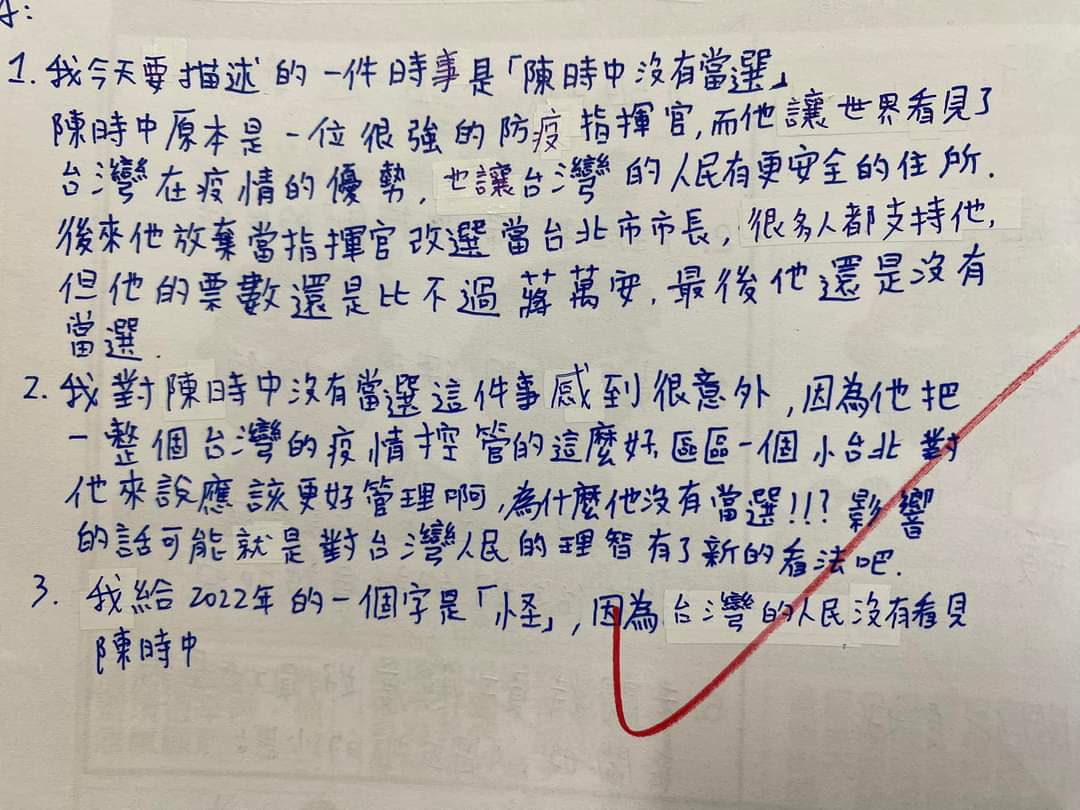 1. 我今天要描述的一件時事是「陳時中沒有當選」
陳時中原本是一位很強的防疫指揮官,而他讓世界看見了
台灣在疫情的優勢,也讓台灣的人民有更安全的住所.
後來他放棄當指揮官改選當台北市市長,很多人都支持他,
但他的票數還是比不過蔣萬安,最後他還是沒有
當選.
2. 我對陳時中沒有當選這件事感到很意外,因為他把
一整個台灣的疫情控管的這麼好,區區一個小台北對
他來說應該更好管理啊,為什麼他沒有當選!!? 影響
的話可能就是對台灣人民的理智有了新的看法吧.
3. 我給2022年的一個字是「怪」,因為台灣的人民沒有看見
陳時中